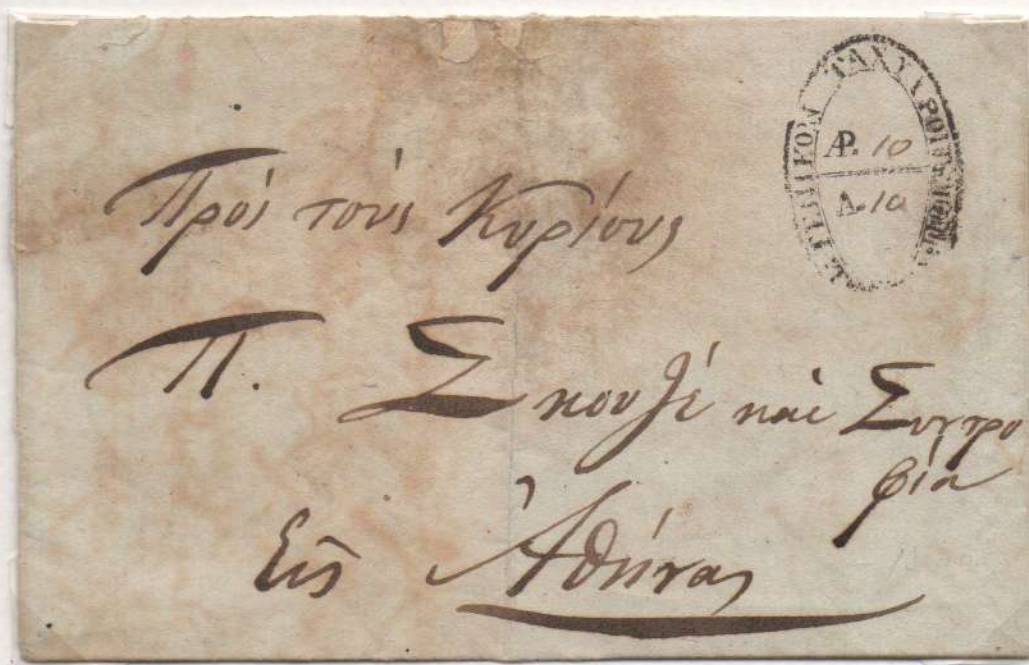 ΓΕΝΙΚΟΝ ΤΑΧΥΔΡΟΜΕΙΟΝ
ΑΡ. 10
Δ. 10
Πρὸς τοὺς Κυρίους
Π. Σκουζὲ καὶ Συντρο
φία
Εἰς Ἀθήνας